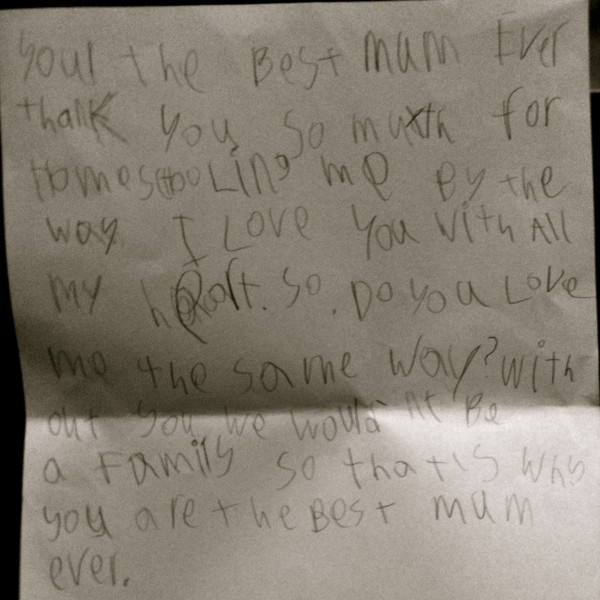 your the Best mum Ever
thank you so mutth for
Homeschooling me By the
way I Love you with All
my heart. so. Do you Love
me the same way? with
out you we would nt Be
a Family so that's why
you are the Best mum
ever.